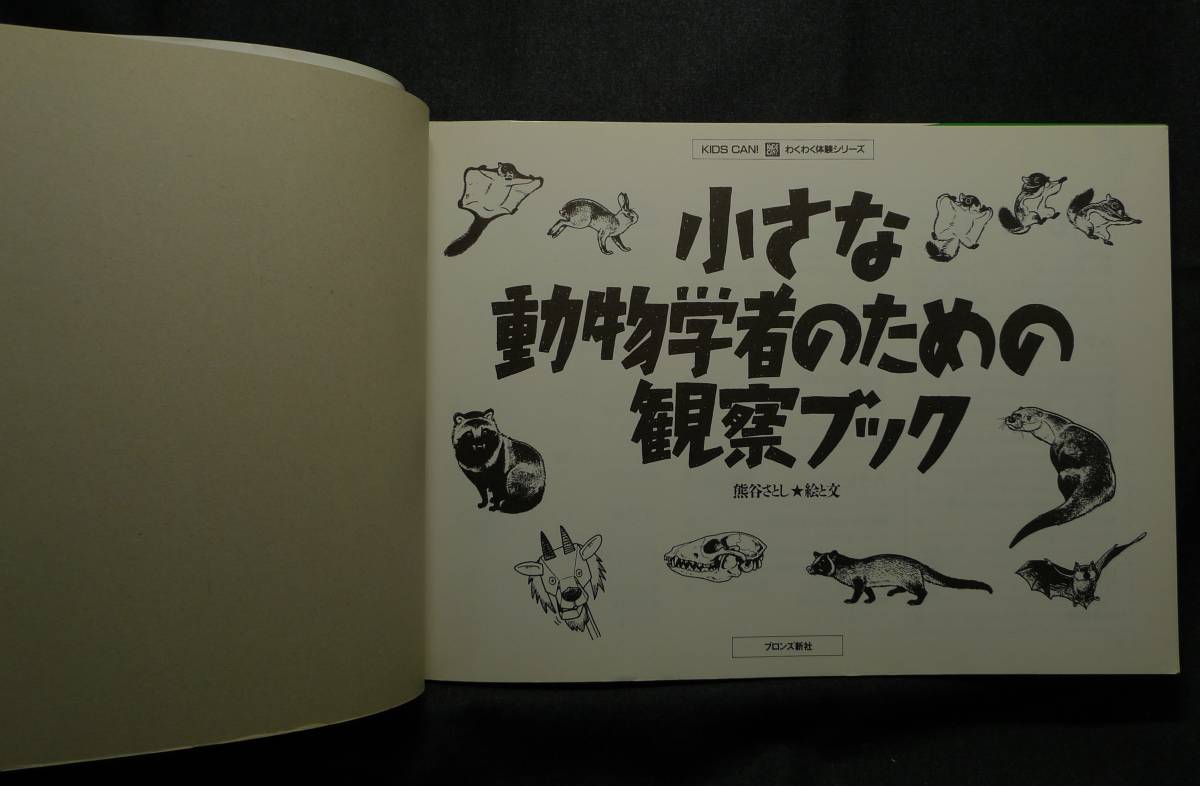 KIDS CAN! わくわく体験シリーズ
小さな
動物学者のための
観察ブック
熊谷さとし★絵と文
ブロンズ新社